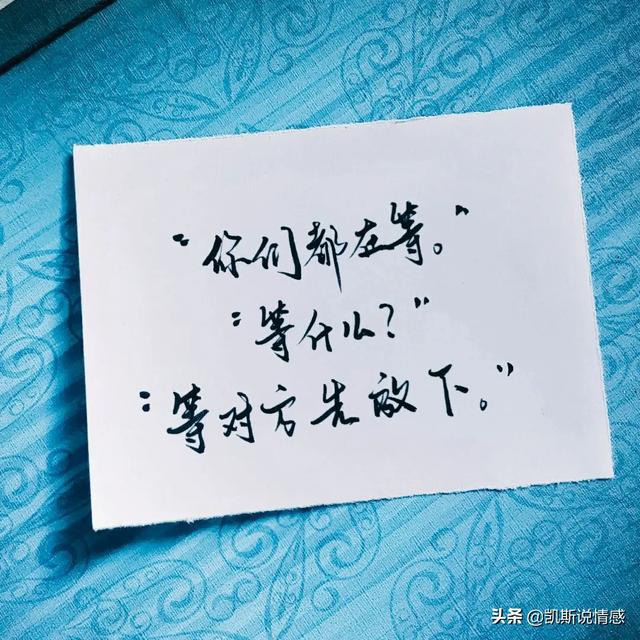 “你们都在等。”
“等什么？”
“等对方先放下。”
头条 @凯斯说情感